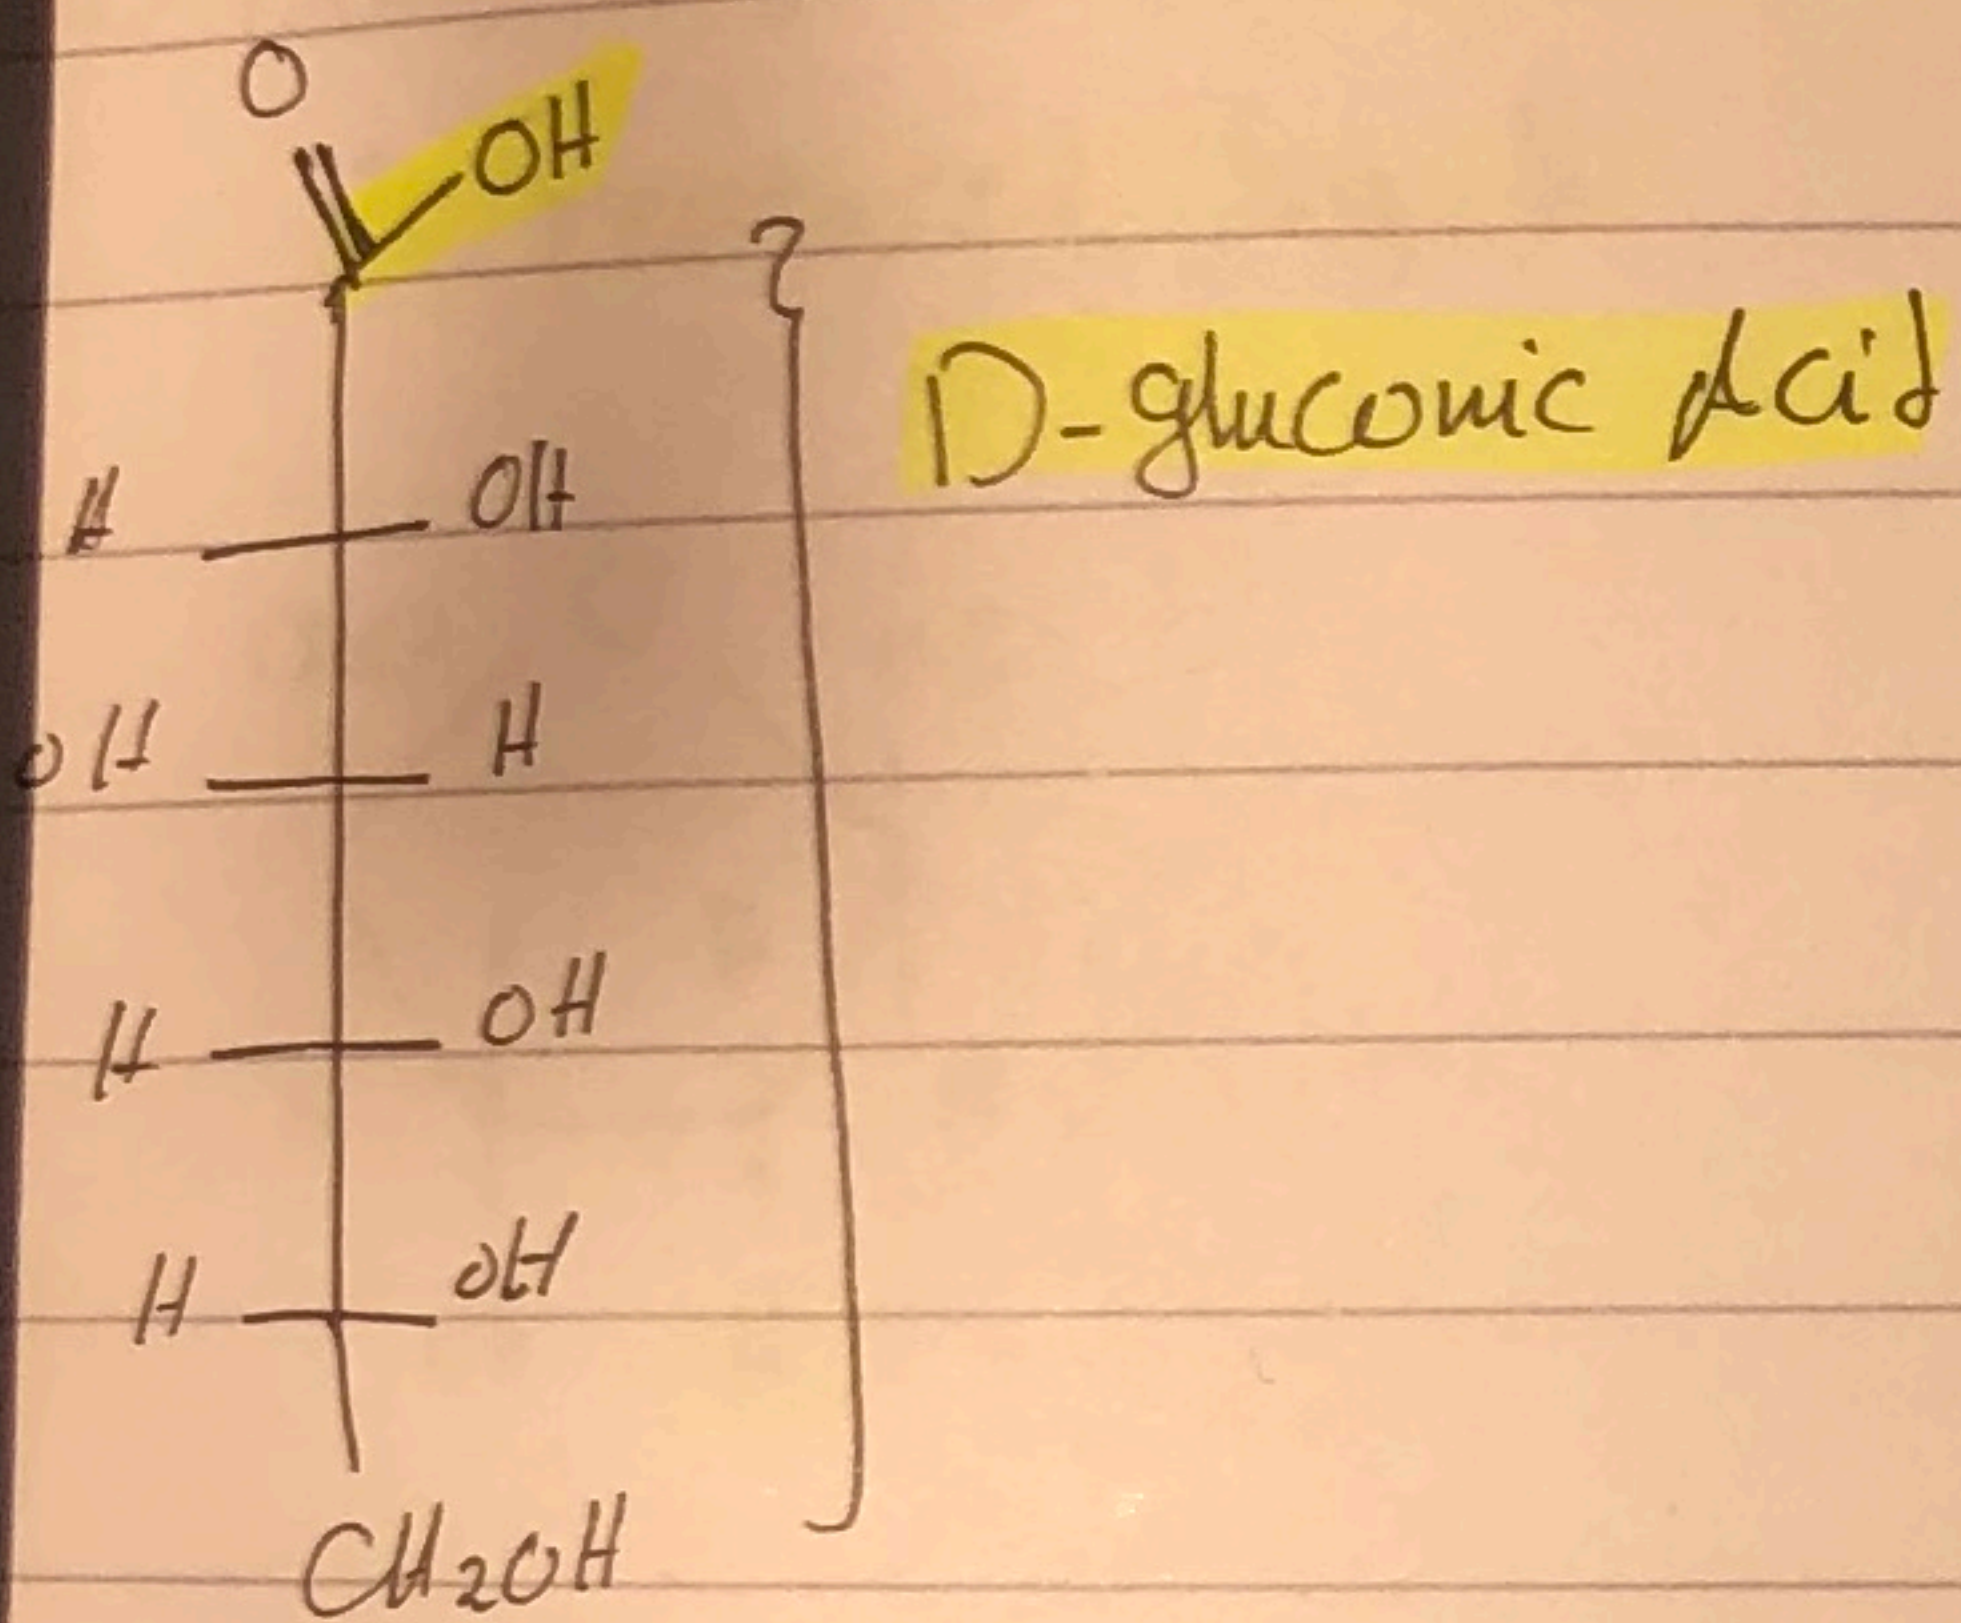 O
OH
D-gluconic Acid
H OH
OH H
H OH
H OH
CH2OH